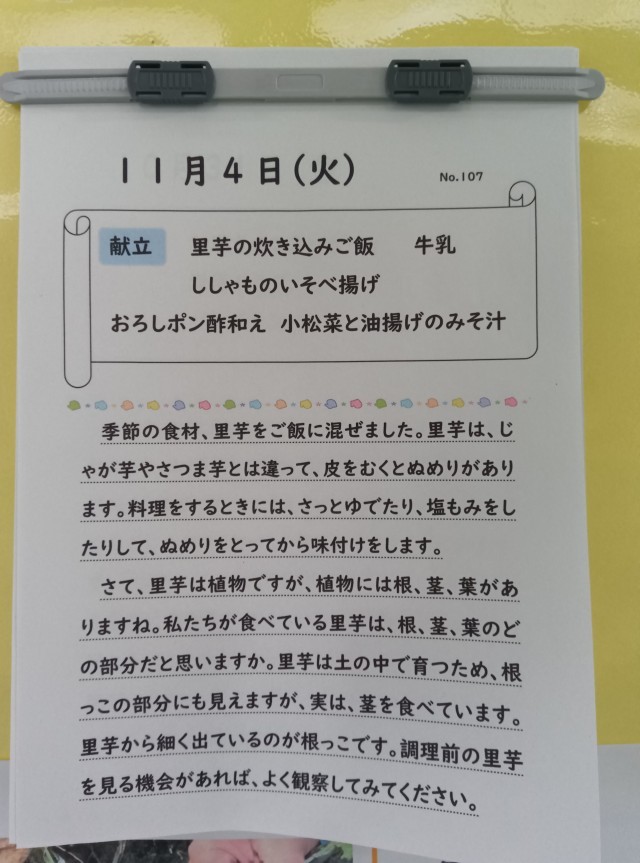 11月4日(火)
No.107
献立 里芋の炊き込みご飯 牛乳
ししゃものいそべ揚げ
おろしポン酢和え 小松菜と油揚げのみそ汁
季節の食材、里芋をご飯に混ぜました。里芋は、じ
ゃが芋やさつま芋とは違って、皮をむくとぬめりがあり
ます。料理をするときには、さっとゆでたり、塩もみをし
たりして、ぬめりをとってから味付けをします。
さて、里芋は植物ですが、植物には根、茎、葉があ
りますね。私たちが食べている里芋は、根、茎、葉のど
の部分だと思いますか。里芋は土の中で育つため、根
っこの部分にも見えますが、実は、茎を食べています。
里芋から細く出ているのが根っこです。調理前の里芋
を見る機会があれば、よく観察してみてください。